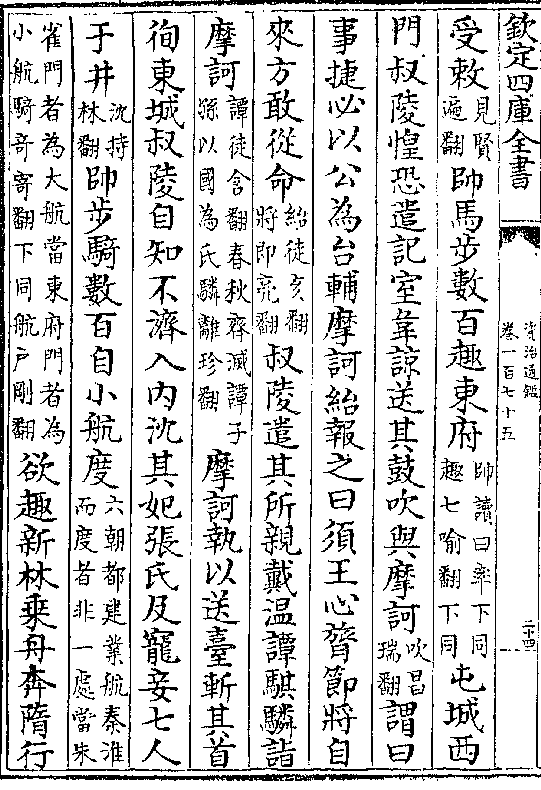 欽定四庫全書
資治通鑑
卷一百七十五
二十四
受敕見賢遍翻帥馬步數百趣東府帥讀曰率下同趣七喻翻下同屯城西
門叔陵惶恐遣記室韋諒送其鼓吹與摩訶吹昌瑞翻謂曰
事捷必以公為台輔摩訶紿報之曰須王心膂節將自
來方敢從命紿徒亥翻將即亮翻叔陵遣其所親戴温譚騏驎詣
摩訶譚徒含翻春秋齊滅譚子孫以國為氏驎離珍翻摩訶執以送臺斬其首
徇東城叔陵自知不濟入内沈其妃張氏及寵妾七人
于井沈持林翻帥步騎數百自小航度六朝都建業航秦淮而度者非一處當朱
雀門者為大航當東府門者為小航騎奇寄翻下同航户剛翻欲趣新林乗舟奔隋行